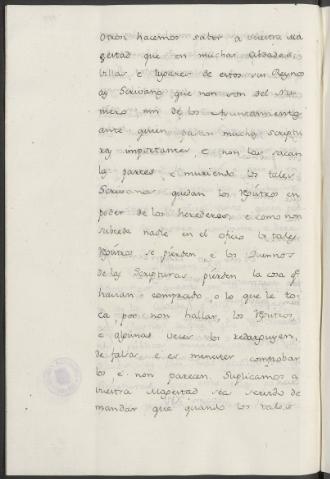 Otrosi hacemos saber a vuestra ma
gestad que en muchas cibdades,
villas e lugares de estos sus Reynos
ay Scrivanos que non son del Nu
mero nin de los Ayuntamientos
ante quien pasan muchas scriptu
ras importantes, e non las sacan
las partes e muriendo los tales
Scrivanos quedan los Registros en
poder de los herederos, e como non
subceda nadie en el oficio los tales
Registros se pierden e los Duennos
de las Scripturas pierden la cosa qe
havian comprado o lo que les to
ca por non hallar los Registros,
e algunas veces los redarguyen
de falsas e es menester comprobar
los e non parecen. Suplicamos a
vuestra Magestad sea servido de
mandar que quando los tales